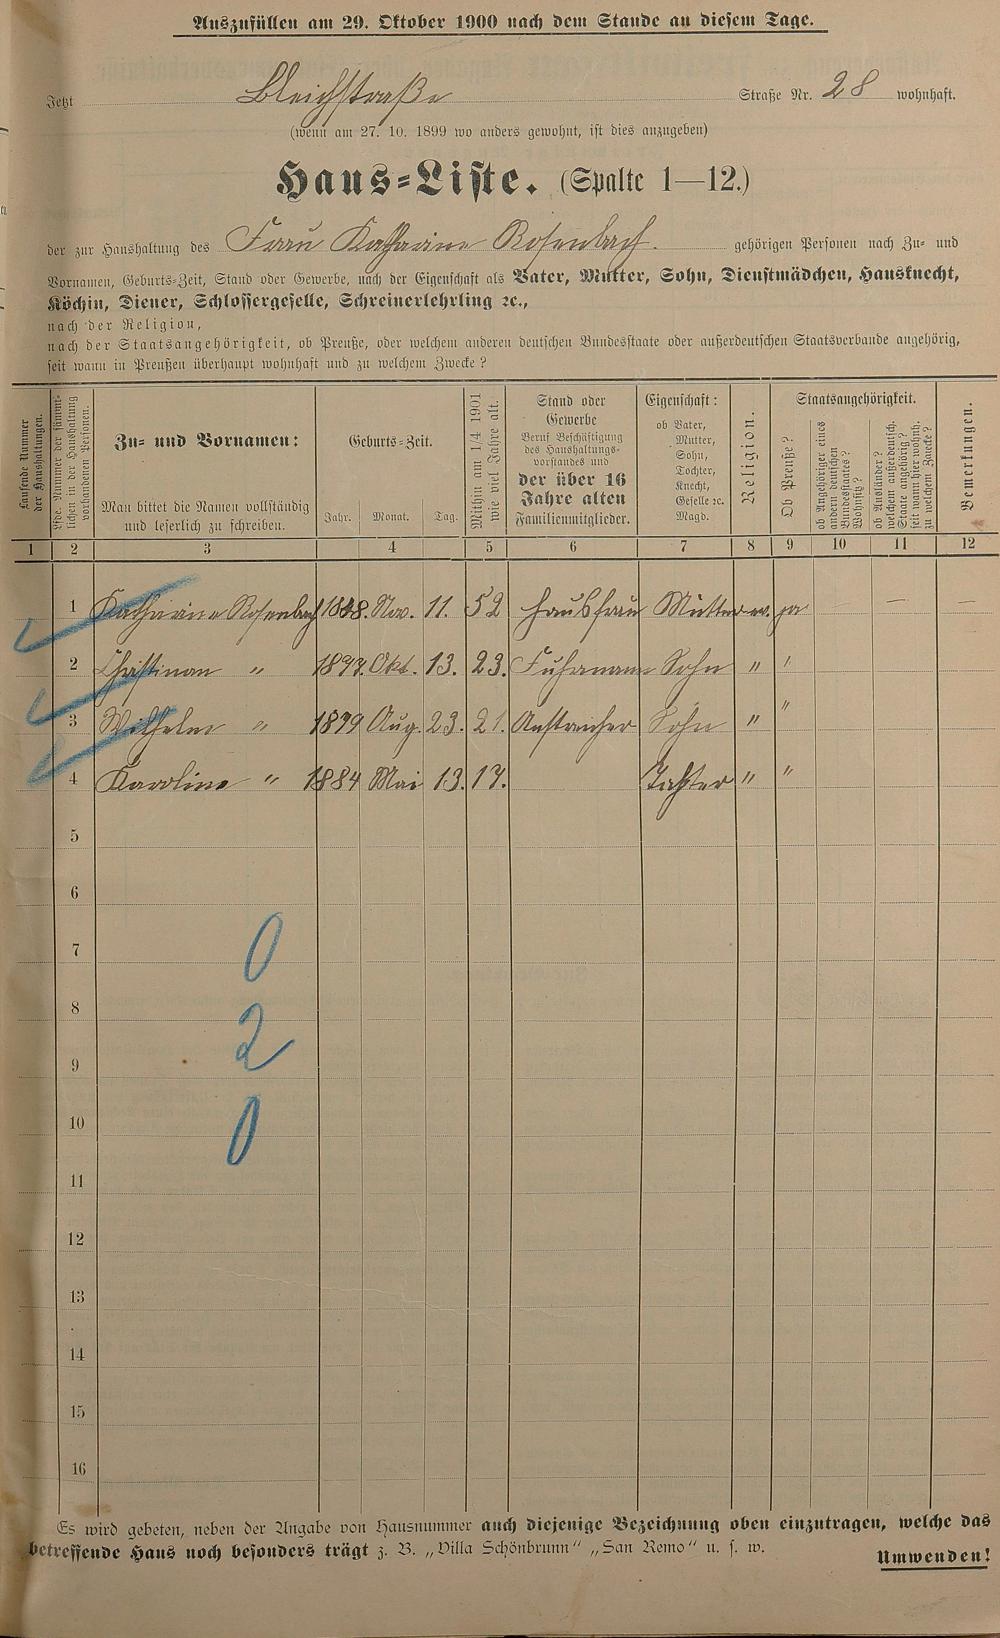 Auszufüllen am 29. Oktober 1900 nach dem Stande an diesem Tage.
Jetzt Bleichstraße Straße Nr. 28 wohnhaft.
(wenn am 27. 10. 1899 wo anders gewohnt, ist dies anzugeben)
Haus-Liste. (Spalte 1—12.)
der zur Haushaltung des Frau Katharine Rosenbach. gehörigen Personen nach Zu- und
Vornamen, Geburts-Zeit, Stand oder Gewerbe, nach der Eigenschaft als Vater, Mutter, Sohn, Dienstmädchen, Hausknecht,
Köchin, Diener, Schlossergeselle, Schreinerlehrling ꝛc.,
nach der Religion,
nach der Staatsangehörigkeit, ob Preuße, oder welchem anderen deutschen Bundesstaate oder außerdeutschen Staatsverbande angehörig,
seit wann in Preußen überhaupt wohnhaft und zu welchem Zwecke?
Laufende Nummer
der Haushaltungen.
Lfde. Nummer der sämmt-
lichen in der Haushaltung
vorhandenen Personen.
Zu- und Vornamen:
Man bittet die Namen vollständig
und leserlich zu schreiben.
Geburts-Zeit.
Jahr. Monat. Tag.
Mithin am 1/4 1901
wie viel Jahre alt.
Stand oder
Gewerbe
Beruf Beschäftigung
des Haushaltungs-
vorstandes und
der über 16
Jahre alten
Familienmitglieder.
Eigenschaft:
ob Vater,
Mutter,
Sohn,
Tochter,
Knecht,
Geselle ꝛc.
Magd.
Religion.
Staatsangehörigkeit.
Ob Preuße?
ob Angehöriger eines
andern deutschen
Bundesstaates?
Wohnsitz?
ob Ausländer?
welchem außerdeutsch.
Staate angehörig?
seit wann hier wohnh.
zu welchem Zwecke?
Bemerkungen.
1 2 3 4 5 6 7 8 9 10 11 12
1 Katharine Rosenbach 1848. Nov. 11. 52 Hausfrau Mutter ev. ja — —
2 " Okt. 13. 23. Fuhrmann Sohn " "
3 Wilhelm " 1879 Aug. 23. 21. Anstreicher Sohn " "
4 Karoline " 1884 Mai 13. 17. Tochter " "
5
6
7
0
8
2
9
10
0
11
12
13
14
15
16
Es wird gebeten, neben der Angabe von Hausnummer auch diejenige Bezeichnung oben einzutragen, welche das
betreffende Haus noch besonders trägt z. B. „Villa Schönbrunn" „San Remo" u. s. w.
Umwenden!